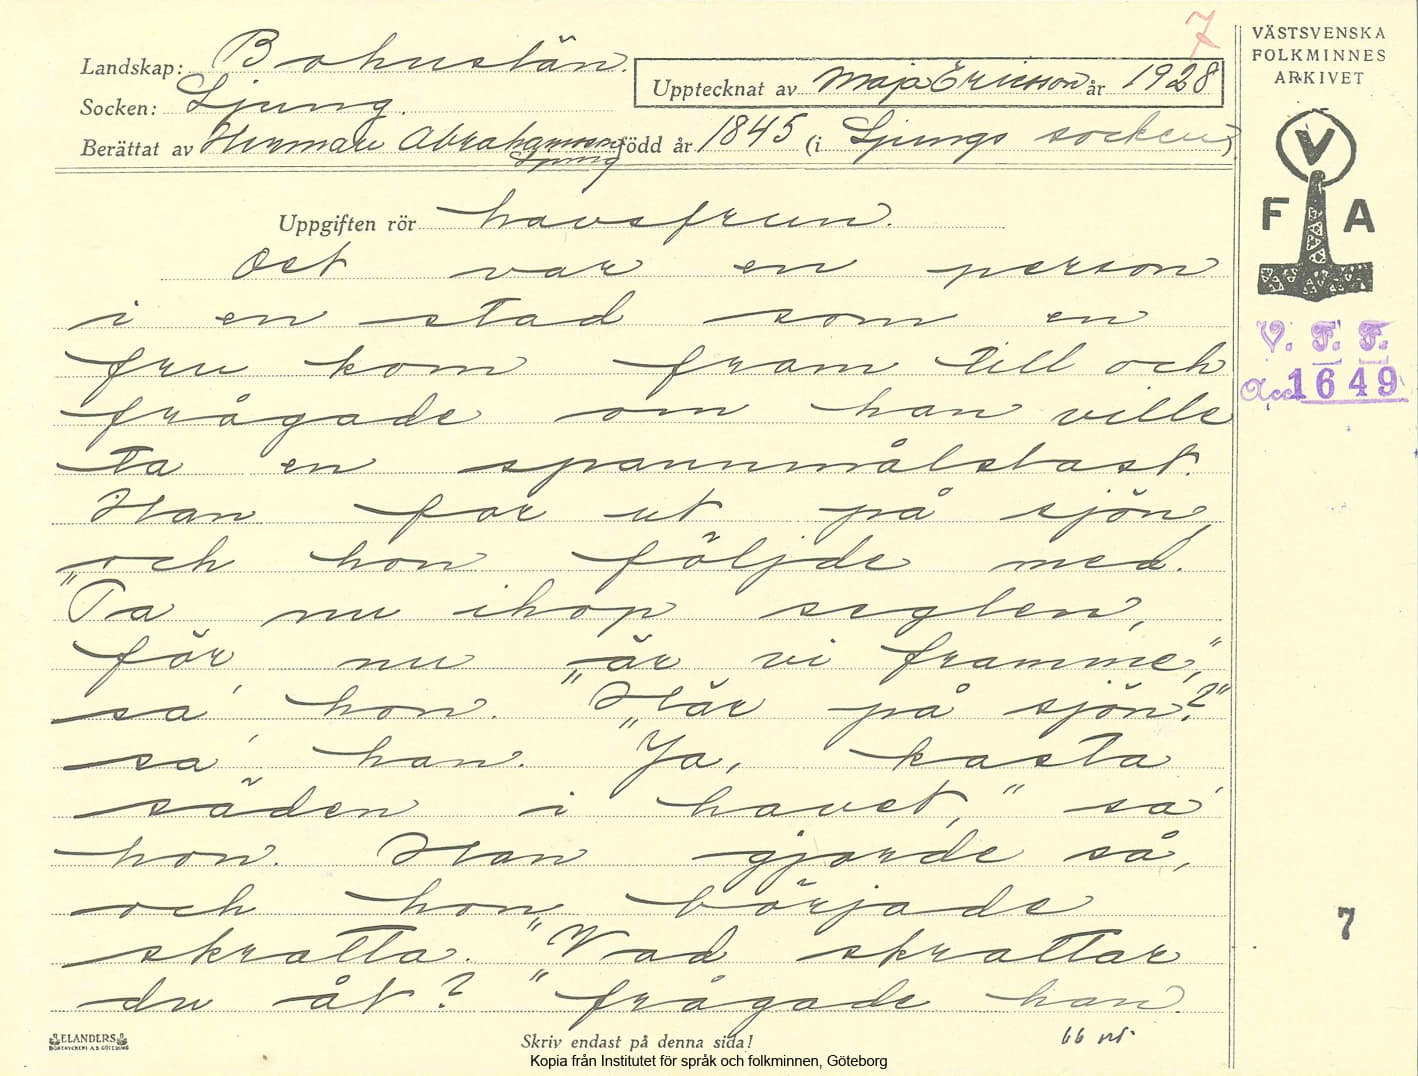 7
VÄSTSVENSKA
FOLKMINNES
ARKIVET
Landskap: Bohuslän.
Upptecknat av Maja Ericsson år 1928
Socken: Ljung.
Berättat av Herman Abrahamsson född år 1845 (i Ljungs socken)
Ljung
V
F A
Uppgiften rör havsfrun.
Det var en person
i en stad som en
fru kom fram till och
frågade om han ville
ta en spannmålslast.
Han for ut på sjön,
och hon följde med.
"Ta nu ihop seglen,
för nu är vi framme,"
sa' hon. "Här på sjön?"
sa' han. "Ja, kasta
säden i havet," sa'
hon. Han gjorde så,
och hon började
skratta. "Vad skrattar
du åt?" frågade han.
V. F. F.
Acc. 1649
7
ELANDERS
BOKTRYCKERI A.B. GÖTEBORG
Skriv endast på denna sida!
66 rr.
Kopia från Institutet för språk och folkminnen, Göteborg